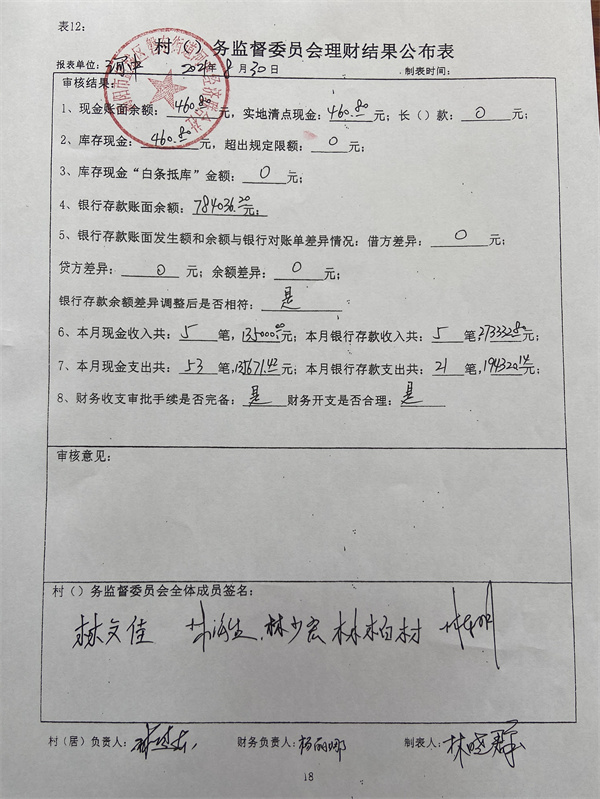 表12:
村（）务监督委员会理财结果公布表
报表单位: 河中 2021年8月30日 制表时间:
审核结果:
1、现金账面余额: 460.80元，实地清点现金: 460.80元；长（）款: 0元；
2、库存现金: 460.80元，超出规定限额: 0元；
3、库存现金“白条抵库”金额: 0元；
4、银行存款账面余额: 784036.20元；
5、银行存款账面发生额和余额与银行对账单差异情况: 借方差异: 0元；
贷方差异: 0元；余额差异: 0元；
银行存款余额差异调整后是否相符: 是
6、本月现金收入共: 5笔，135000.00元；本月银行存款收入共: 5笔273332.80元；
7、本月现金支出共: 53笔，135671.42元；本月银行存款支出共: 21笔，194320.14元；
8、财务收支审批手续是否完备: 是 财务开支是否合理: 是
审核意见:
村（）务监督委员会全体成员签名:
林文佳 林少宏 林柏村
村（居）负责人: 财务负责人: 杨丽娜 制表人: 林晓群
18